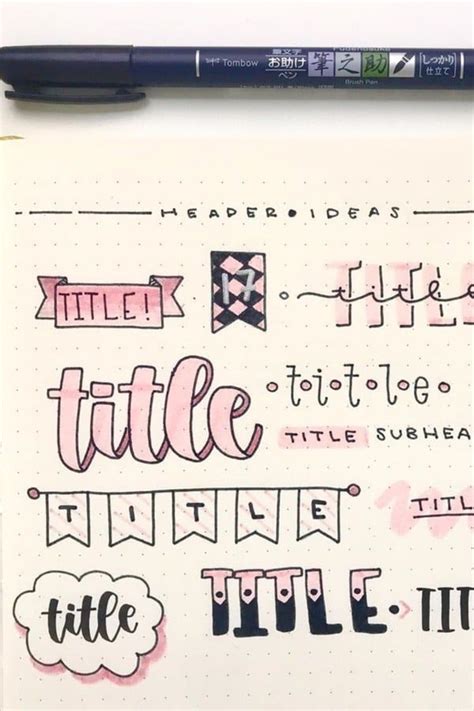 Tombow 筆文字 お助け ペン Fudenosuke 筆之助 Brush Pen しっかり 仕立て
HEADER • IDEAS
TITLE! 17 title TITLE
title title
TITLE SUBHEA
TITLE TITL
title TITLE TIT